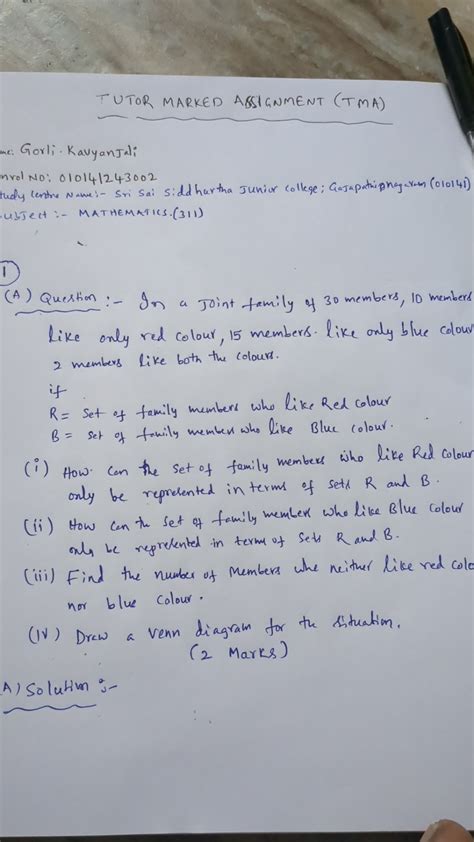 TUTOR MARKED ASSIGNMENT (TMA)
me: Gorli. Kavyanjali
nrol NO: 010141243002
tudy Centre Name:- Sri Sai Siddhartha Junior College; Gajapathipnagaram (010141)
ubject :- MATHEMATICS.(311)
1
(A) Question :- In a Joint family of 30 members, 10 members
like only red colour, 15 members. like only blue colour
2 members like both the colours.
if
R = set of family members who like Red colour
B = set of family members who like Blue colour.
(i) How can the set of family members who like Red colour
only be represented in terms of sets R and B.
(ii) How can the set of family members who like Blue colour
only be represented in terms of sets R and B.
(iii) Find the number of Members who neither like red colo
nor blue colour.
(IV) Draw a venn diagram for the situation.
(2 Marks)
A) Solution :-